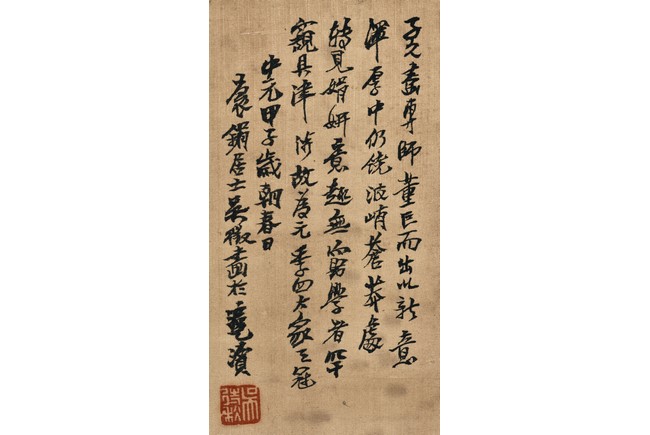 子久畫專師董巨而出以新意
渾厚中仍饒波峭蒼莽處
轉見娟妍意趣無窮學者罕
窺其津涉故為元季四大家之冠
中元甲子歲朝春日
袌鋗居士吳徵畫於滬濱
吳待秋